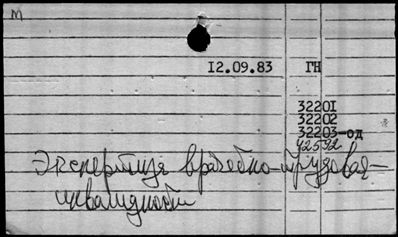 м
12.09.83 ГН
32201
32202
32203-од
42592
Экспертиза врачебно-трудовая-
инвалидности